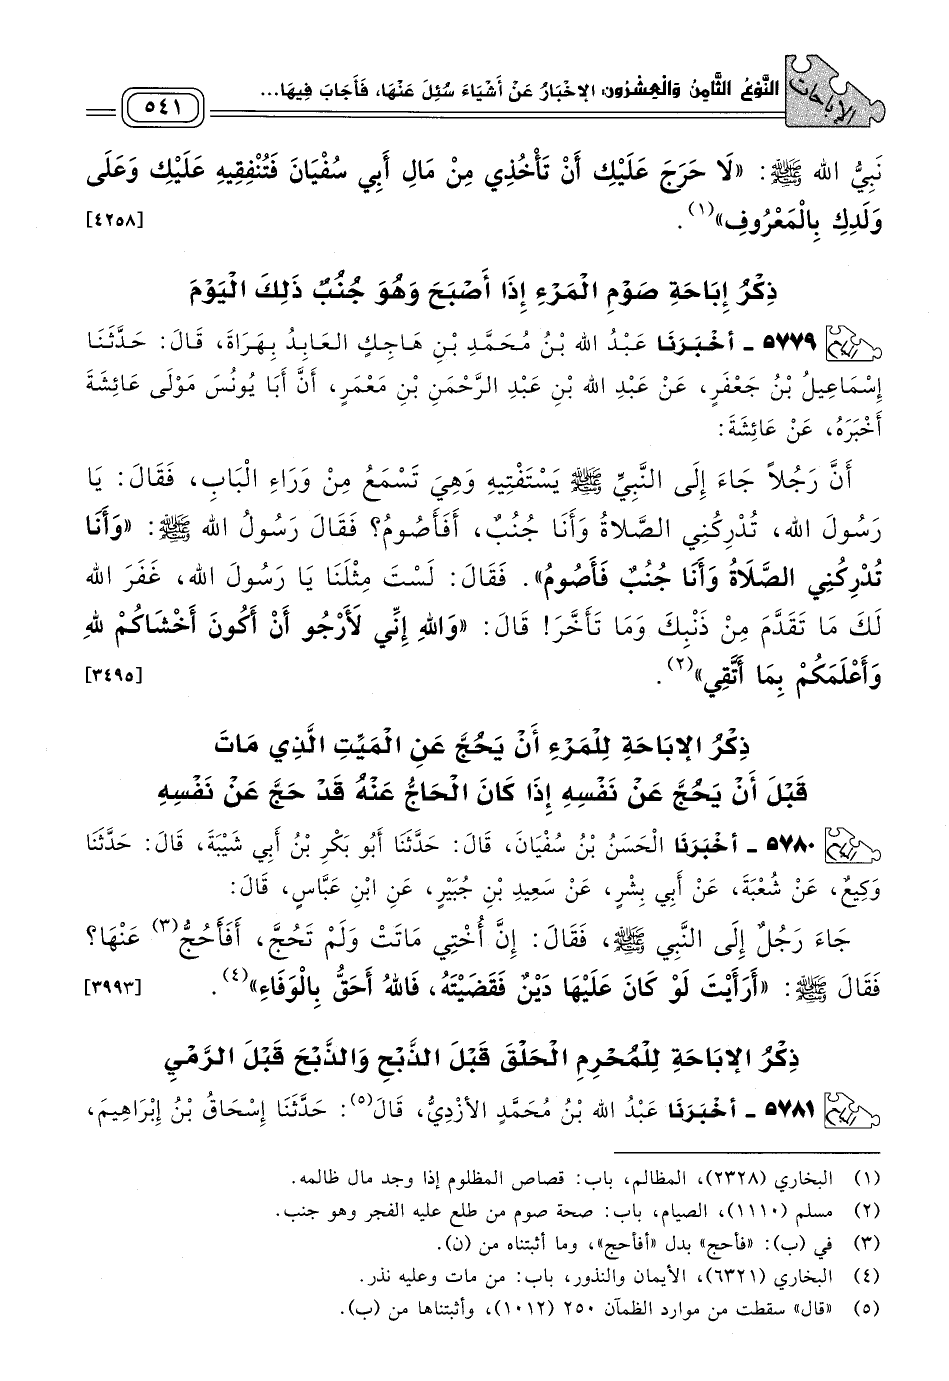 الإباحات
النَّوْعُ الثَّامِنُ وَالْعِشْرُونَ: الإخْبَارُ عَنْ أَشْيَاءَ سُئِلَ عَنْهَا، فَأَجَابَ فِيهَا...
٥٤١
نَبِيُّ الله ﷺ: «لَا حَرَجَ عَلَيْكِ أَنْ تَأْخُذِي مِنْ مَالِ أَبِي سُفْيَانَ فَتُنْفِقِيهِ عَلَيْكِ وَعَلَى
وَلَدِكِ بِالْمَعْرُوفِ»(١). [٤٢٥٨]
ذِكْرُ إِبَاحَةِ صَوْمِ الْمَرْءِ إِذَا أَصْبَحَ وَهُوَ جُنُبٌ ذَلِكَ الْيَوْمَ
٥٧٧٩ ـ أَخْبَرَنَا عَبْدُ الله بْنُ مُحَمَّدِ بْنِ هَاجِكٍ العَابِدُ بِهَرَاةَ، قَالَ: حَدَّثَنَا
إِسْمَاعِيلُ بْنُ جَعْفَرٍ، عَنْ عَبْدِ الله بْنِ عَبْدِ الرَّحْمَنِ بْنِ مَعْمَرٍ، أَنَّ أَبَا يُونُسَ مَوْلَى عَائِشَةَ
أَخْبَرَهُ، عَنْ عَائِشَةَ:
أَنَّ رَجُلاً جَاءَ إِلَى النَّبِيِّ ﷺ يَسْتَفْتِيهِ وَهِيَ تَسْمَعُ مِنْ وَرَاءِ الْبَابِ، فَقَالَ: يَا
رَسُولَ الله، تُدْرِكُنِي الصَّلَاةُ وَأَنَا جُنُبٌ، أَفَأَصُومُ؟ فَقَالَ رَسُولُ الله ﷺ: «وَأَنَا
تُدْرِكُنِي الصَّلَاةُ وَأَنَا جُنُبٌ فَأَصُومُ». فَقَالَ: لَسْتَ مِثْلَنَا يَا رَسُولَ الله، غَفَرَ الله
لَكَ مَا تَقَدَّمَ مِنْ ذَنْبِكَ وَمَا تَأَخَّرَ! قَالَ: «وَاللهِ إِنِّي لَأَرْجُو أَنْ أَكُونَ أَخْشَاكُمْ لِلهِ
وَأَعْلَمَكُمْ بِمَا أَتَّقِي»(٢). [٣٤٩٥]
ذِكْرُ الإِبَاحَةِ لِلْمَرْءِ أَنْ يَحُجَّ عَنِ الْمَيِّتِ الَّذِي مَاتَ
قَبْلَ أَنْ يَحُجَّ عَنْ نَفْسِهِ إِذَا كَانَ الْحَاجُّ عَنْهُ قَدْ حَجَّ عَنْ نَفْسِهِ
٥٧٨٠ ـ أَخْبَرَنَا الْحَسَنُ بْنُ سُفْيَانَ، قَالَ: حَدَّثَنَا أَبُو بَكْرِ بْنُ أَبِي شَيْبَةَ، قَالَ: حَدَّثَنَا
وَكِيعٌ، عَنْ شُعْبَةَ، عَنْ أَبِي بِشْرٍ، عَنْ سَعِيدِ بْنِ جُبَيْرٍ، عَنِ ابْنِ عَبَّاسٍ، قَالَ:
جَاءَ رَجُلٌ إِلَى النَّبِي ﷺ، فَقَالَ: إِنَّ أُخْتِي مَاتَتْ وَلَمْ تَحُجَّ، أَفَأَحُجُّ(٣) عَنْهَا؟
فَقَالَ ﷺ: «أَرَأَيْتَ لَوْ كَانَ عَلَيْهَا دَيْنٌ فَقَضَيْتَهُ، فَاللهُ أَحَقُّ بِالْوَفَاءِ»(٤). [٣٩٩٣]
ذِكْرُ الإِبَاحَةِ لِلْمُحْرِمِ الْحَلْقَ قَبْلَ الذَّبْحِ وَالذَّبْحَ قَبْلَ الرَّمْيِ
٥٧٨١ ـ أَخْبَرَنَا عَبْدُ الله بْنُ مُحَمَّدٍ الأَزْدِيُّ، قَالَ(٥): حَدَّثَنَا إِسْحَاقُ بْنُ إِبْرَاهِيمَ،
(١) البخاري (٢٣٢٨)، المظالم، باب: قصاص المظلوم إذا وجد مال ظالمه.
(٢) مسلم (١١١٠)، الصيام، باب: صحة صوم من طلع عليه الفجر وهو جنب.
(٣) في (ب): «فأحج» بدل «أفأحج»، وما أثبتناه من (ن).
(٤) البخاري (٦٣٢١)، الأيمان والنذور، باب: من مات وعليه نذر.
(٥) «قال» سقطت من موارد الظمآن ٢٥٠ (١٠١٢)، وأثبتناها من (ب).